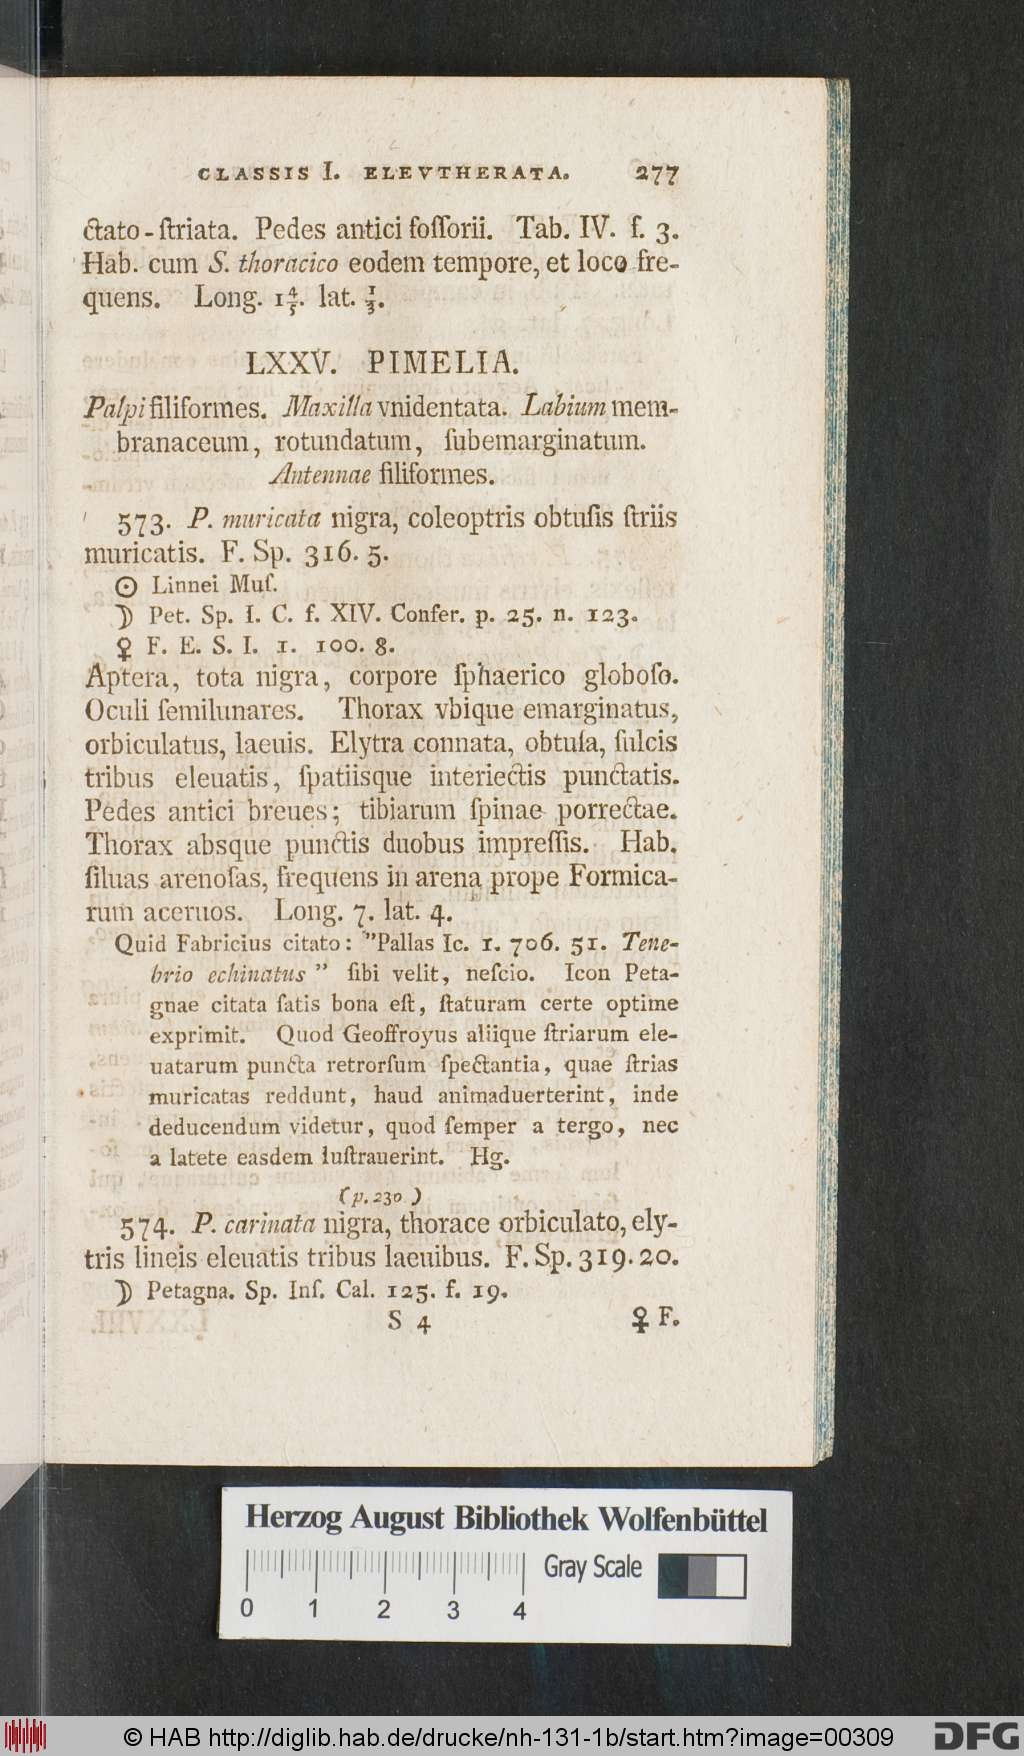 CLASSIS I. ELEVTHERATA. 277
ctato-ſtriata. Pedes antici foſſorii. Tab. IV. f. 3.
Hab. cum S. thoracico eodem tempore, et loco fre-
quens. Long. 1⅘. lat. ⅓.
LXXV. PIMELIA.
Palpi filiformes. Maxilla vnidentata. Labium mem-
branaceum, rotundatum, ſubemarginatum.
Antennae filiformes.
573. P. muricata nigra, coleoptris obtuſis ſtriis
muricatis. F. Sp. 316. 5.
☉ Linnei Muſ.
☽ Pet. Sp. I. C. f. XIV. Confer. p. 25. n. 123.
♀ F. E. S. I. 1. 100. 8.
Aptera, tota nigra, corpore ſphaerico globoſo.
Oculi ſemilunares. Thorax vbique emarginatus,
orbiculatus, laeuis. Elytra connata, obtuſa, ſulcis
tribus eleuatis, ſpatiisque interiectis punctatis.
Pedes antici breues; tibiarum ſpinae porrectae.
Thorax absque punctis duobus impreſſis. Hab.
ſiluas arenoſas, frequens in arena prope Formica-
rum aceruos. Long. 7. lat. 4.
Quid Fabricius citato: ”Pallas Ic. 1. 706. 51. Tene-
brio echinatus” ſibi velit, neſcio. Icon Peta-
gnae citata ſatis bona eſt, ſtaturam certe optime
exprimit. Quod Geoffroyus aliique ſtriarum ele-
uatarum puncta retrorſum ſpectantia, quae ſtrias
muricatas reddunt, haud animaduerterint, inde
deducendum videtur, quod ſemper a tergo, nec
a latete easdem luſtrauerint. Hg.
(p. 230)
574. P. carinata nigra, thorace orbiculato, ely-
tris lineis eleuatis tribus laeuibus. F. Sp. 319. 20.
☽ Petagna. Sp. Inſ. Cal. 125. f. 19.
S 4 ♀ F.
Herzog August Bibliothek Wolfenbüttel
Gray Scale
0 1 2 3 4
© HAB http://diglib.hab.de/drucke/nh-131-1b/start.htm?image=00309
DFG